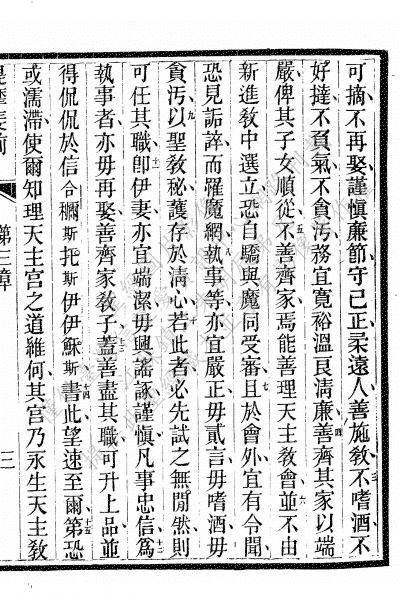 可摘不再娶謹慎廉節守己正柔遠人善施教不嗜酒不
好撻不負氣不貪汚務宜寬裕溫良清廉善齊其家以端
嚴俾其子女順從不善齊家焉能善理天主敎會並不由
新進敎中選立恐自驕與魔同受審且於會外宜有令聞
恐見訴誶而罹魔網執事等亦宜嚴正毋貳言毋嗜酒毋
貪汚以聖敎秘護存於清心若此者必先試之無閒然則
可任其職卽伊妻亦宜端潔毋興謠諑謹慎凡事忠信爲
執事者亦毋再娶善齊家敎子蓋善盡其職可升上品並
得侃侃於信合穪斯托斯伊伊穌斯書此望速至爾第恐
或濡滯使爾知理天主宮之道維何其宮乃永生天主敎
第三章
三